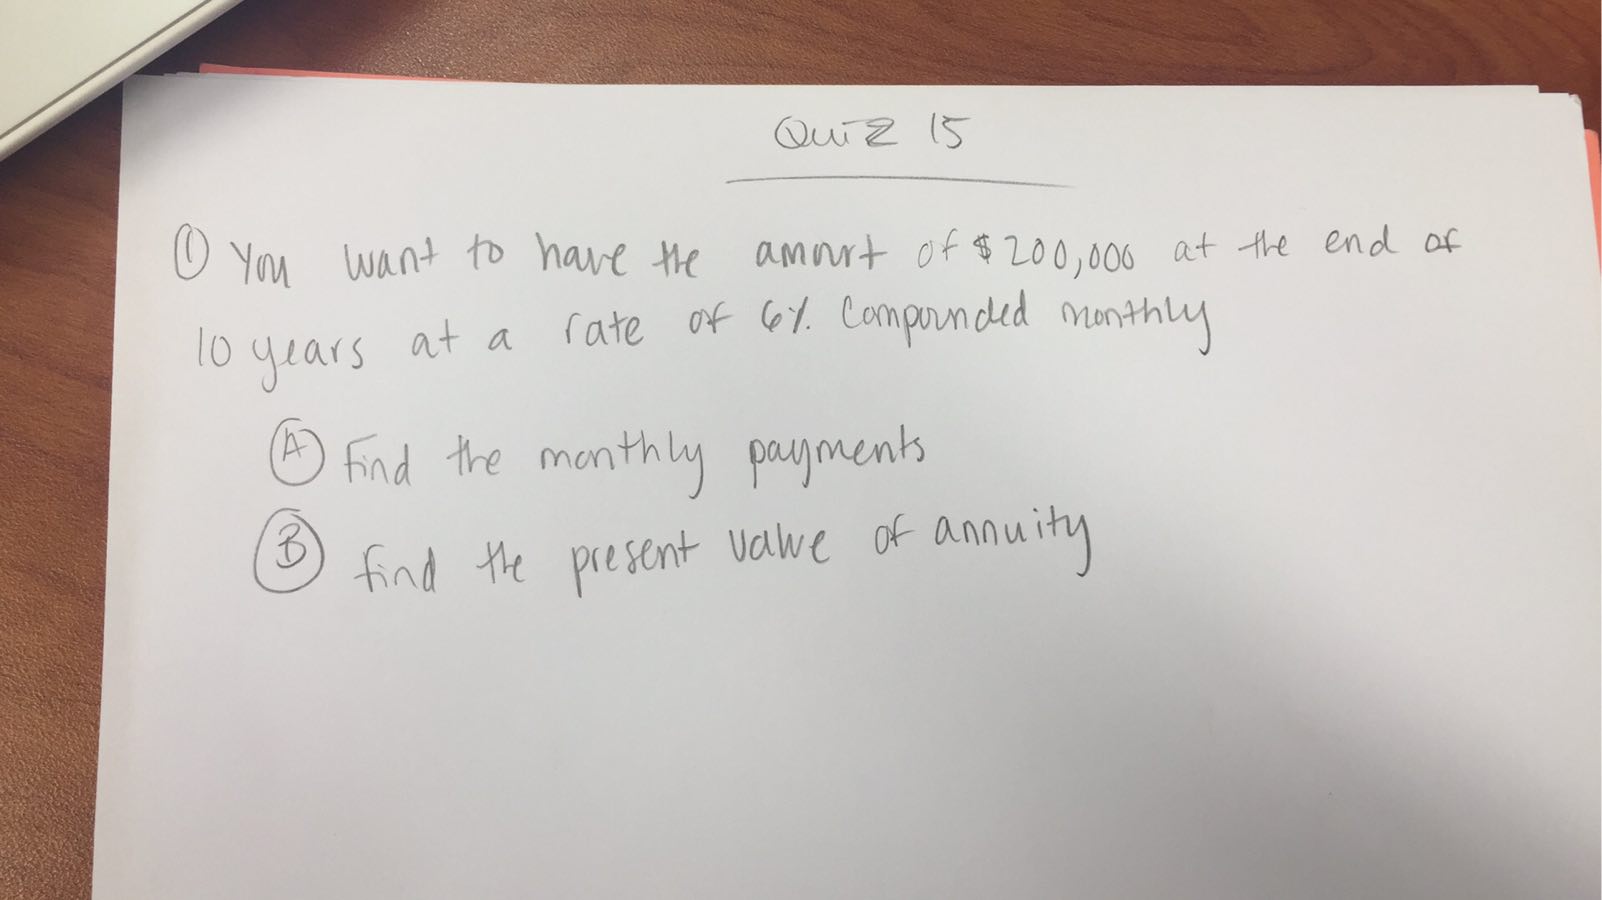 Quiz 15
① You want to have the amount of $200,000 at the end of
10 years at a rate of 6% compounded monthly
Ⓐ Find the monthly payments
Ⓑ find the present value of annuity